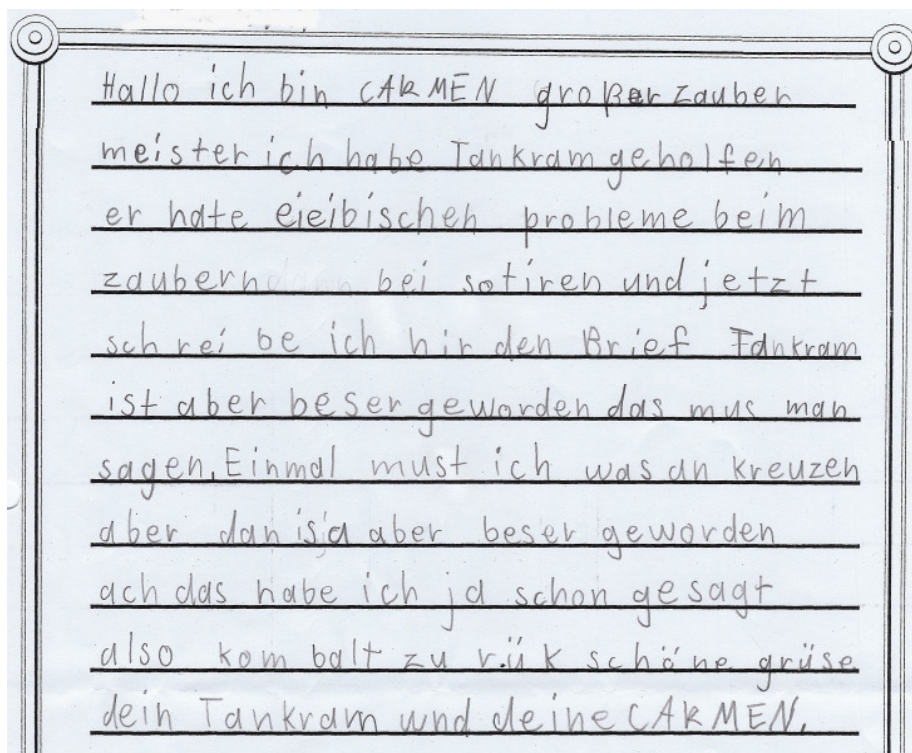 Hallo ich bin CARMEN großer zauber
meister ich habe Tankram geholfen
er hate eieibischen probleme beim
zaubern bei sotiren und jetzt
schrei be ich hir den Brief Tankram
ist aber beser geworden das mus man
sagen. Einmal must ich was an kreuzen
aber dan is a aber beser geworden
ach das habe ich ja schon gesagt
also kom balt zu rük schöne grüse
dein Tankram und deine CARMEN.